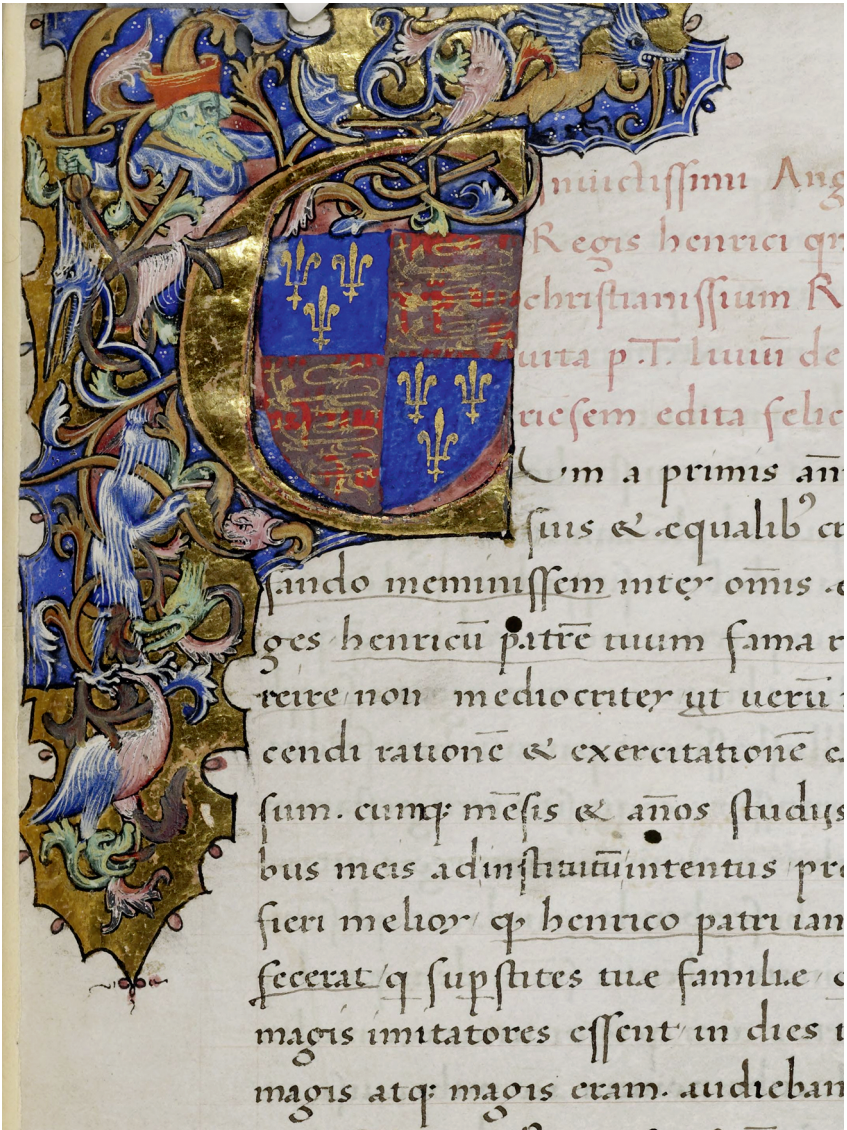 Inuictissimi Ang
Regis henrici qu
christianissimum R
uita p. T. Liuiū de
riēsem edita felic
Cum a primis an̄
suis & equalibꝰ cr
sando meminissem inter om̄is
ges henricū patrē tuum fama r
reire non mediocriter ut uerū
cendi rationē & exercitationē c
sum. cumq; mēsis & an̄os studijs
bus meis ad institutū intentus pre
fieri melior qͥ henrico patri iam
fecerat q sup̱stites tue familie
magis imitatores essent in dies i
magis atq; magis eram. audieban